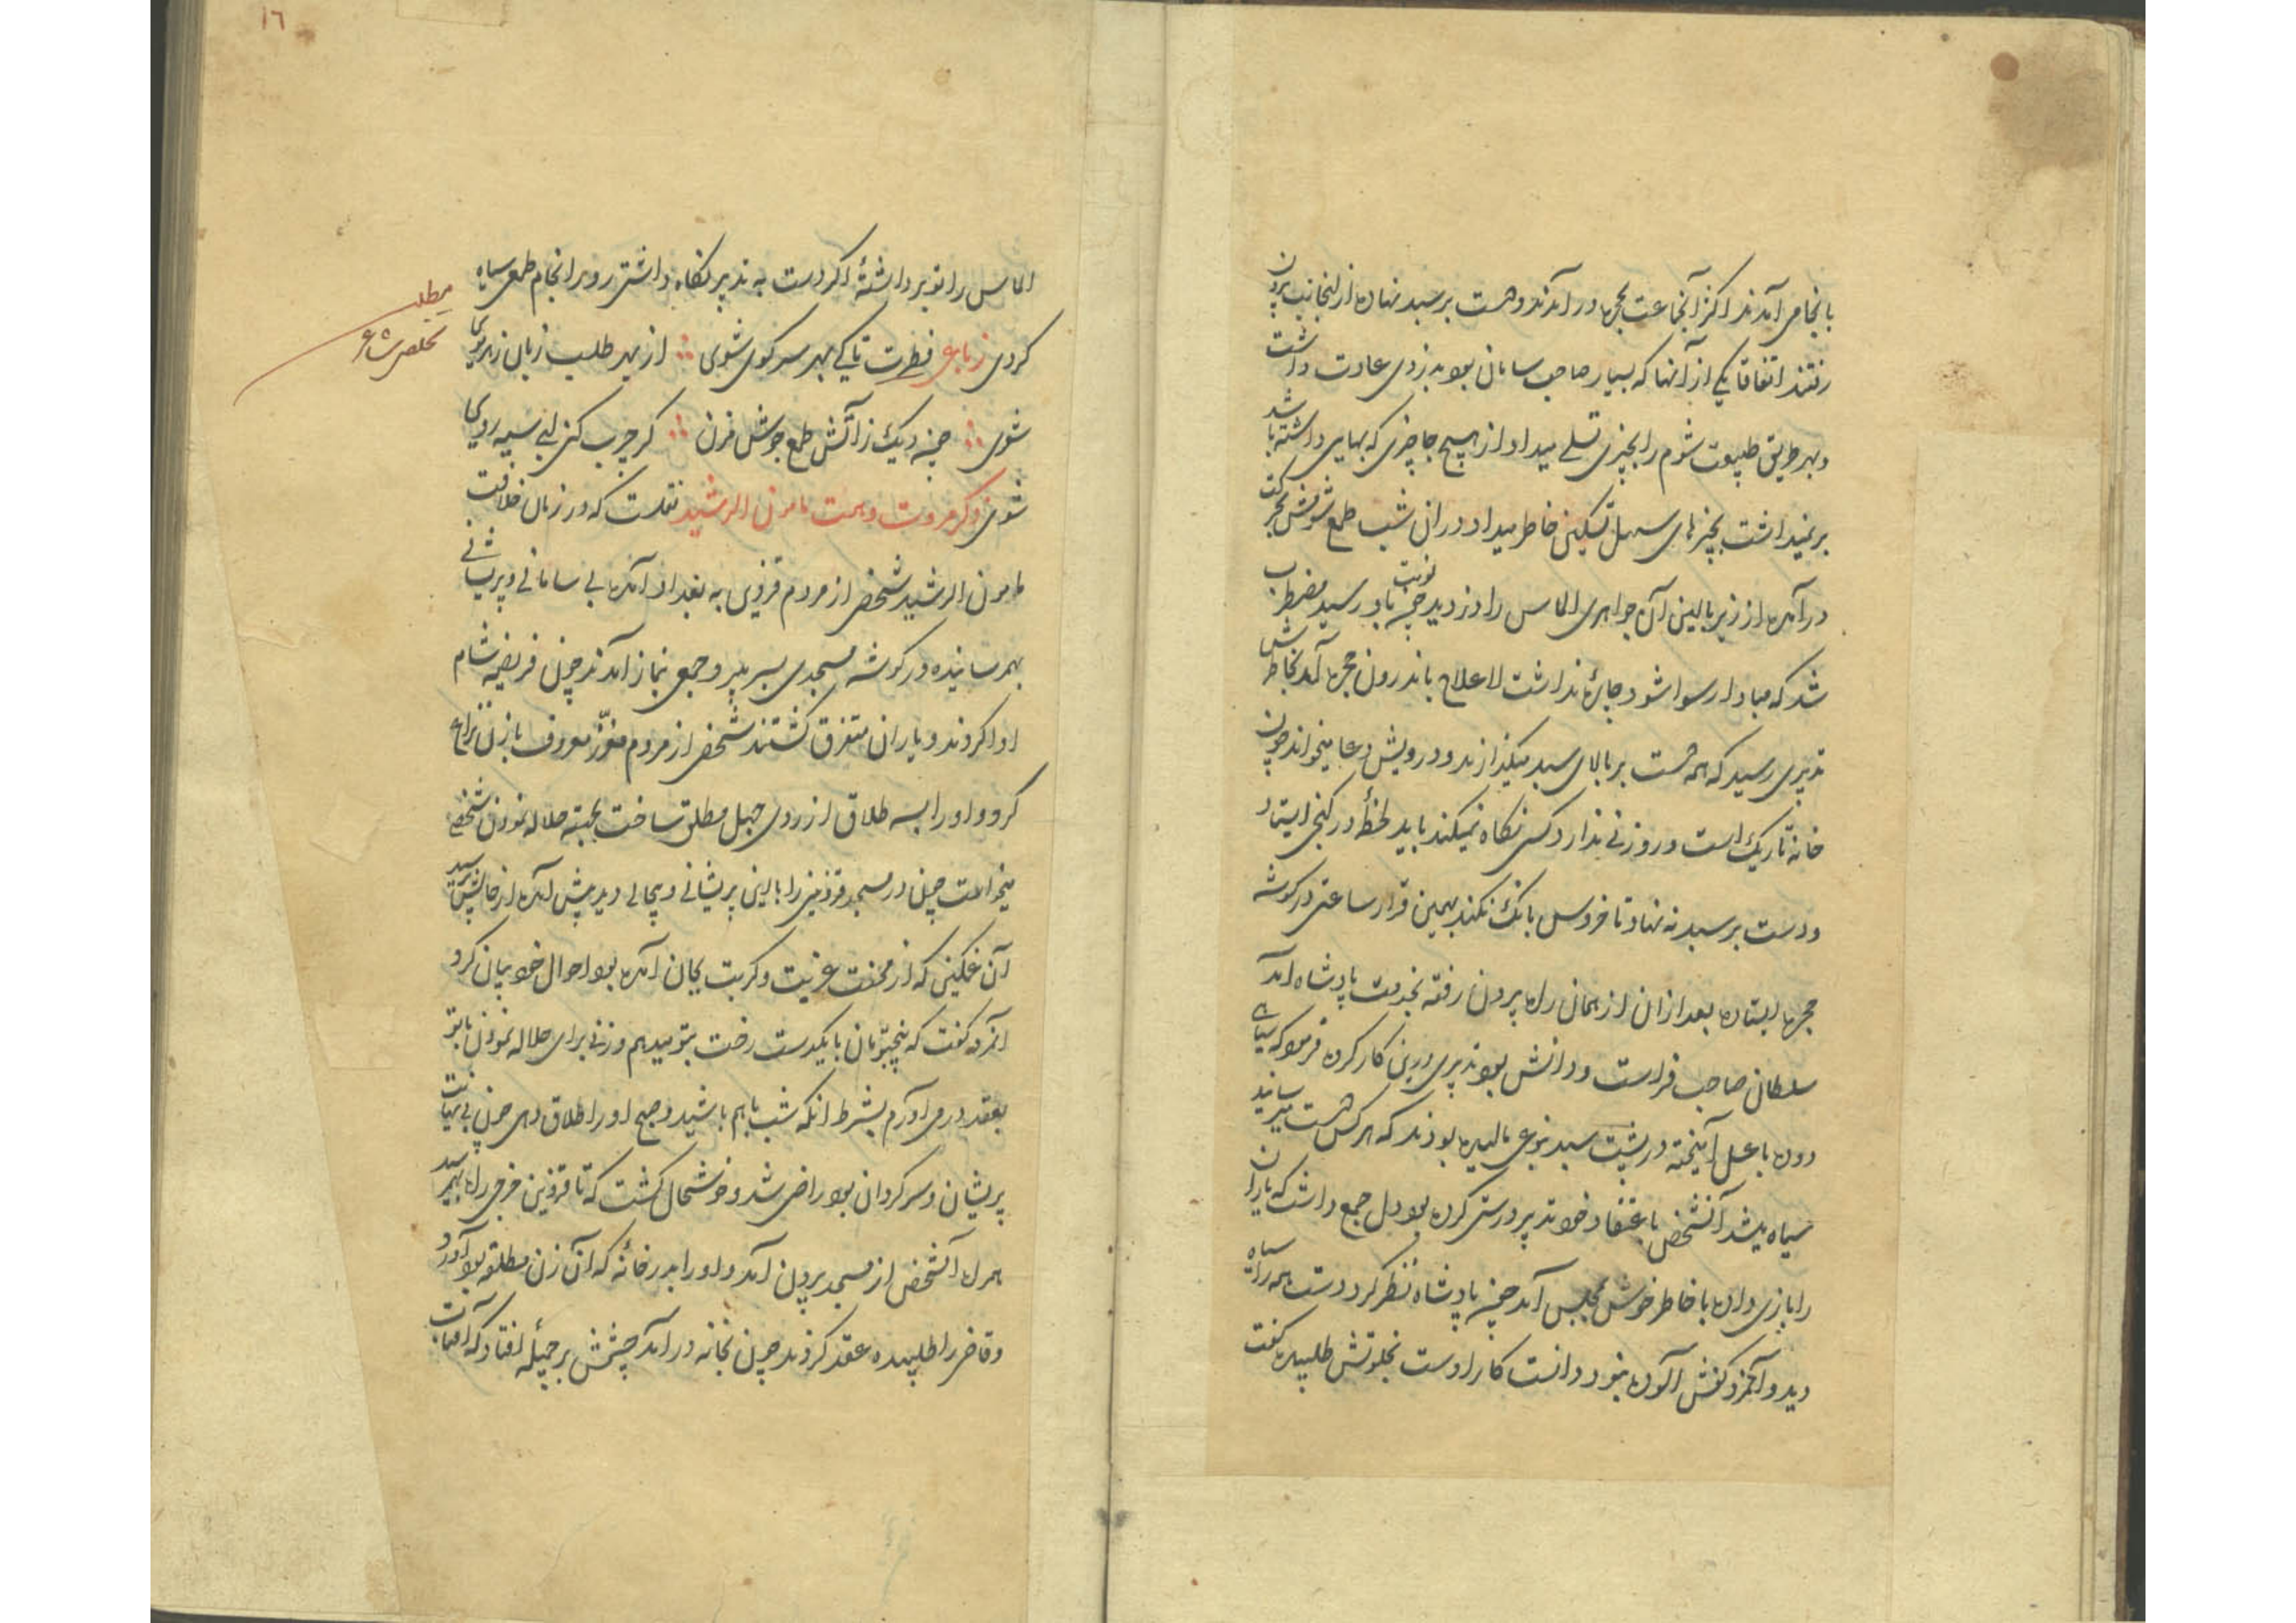 بانجا می آمدند اکثر آنجماعت بحجره در آمدند و دست بر سبد نهاده از انجانب برون
رفتند اتفاقا یکی از آنها که بسیار صاحب سامان بود بدزدی عادت داشت
و بهر طریق طبیعت شوم را بچیزی تسلی میداد از هیچ جا چیزی که بهایی داشته باشد
بر نمیداشت بچیزهای سهل تسکین خاطر میداد در ان شب طمع شومش بحرکت
در آمده از زیر بالین آن جواهری الماس را دزدید چون نوبت باو رسید مضطرب
شد که مبادا رسوا شود چاره نداشت لاعلاج باندرون حجره آمد بخاطرش
تدبیری رسید که همه دست بر بالای سبد میگذارند و درویش دعا میخواند چون
خانه تاریک است و روزنی ندارد کسی نگاه نمیکند باید لحظهٔ در کنجی ایستاد
و دست بر سبد نه نهاد تا خروس بانگ نکند بهمین قرار ساعتی در گوشه
حجره ایستاده بعد از ان از همان راه بیرون رفته بخدمت پادشاه آمد
سلطان صاحب فراست و دانش بود تدبیری درین کار کرده فرمود که سیاهی
دوده با عسل آمیخته در پشت سبد بنوعی مالیده بودند که هر کس دست میرسانید
سیاه میشد آنشخص باعتقاد خود تدبیر درستی کرده بود دل جمع داشت که یاران
را بازی داده با خاطر خوش بمجلس آمد چون پادشاه نظر کرد دست همه را سیاه
دید و آنمرد کفش آلوده نبود دانست کار اوست بخلوتش طلبیده گفت
۱۶
الماس را تو برداشتهٔ اگر دست به تدبیر نگاه داشتی رو بر انجام طمع سیاه
کردی رباعی فطرت تا کی بهر سر کوی شوی از بهر طلب زبان زبدگوی
شوی چون دیگ ز آتش طمع جوش مزن گر چرب کنی لبی سیه روی
شوی ذکر مروت و همت مامون الرشید نقلست که در زمان خلافت
مامون الرشید شخصی از مردم قزوین به بغداد آمده بی سامانی و پریشانی
بهمرسانیده در گوشه مسجدی بسر میبرد جمعی بنماز آمدند چون فریضه شام
ادا کردند و یاران متفرق گشتند شخصی از مردم معزز معروف با زن نزاع
کرد و او را بسه طلاق از روی جهل مطلق ساخت بجهته حلاله نمودن شخصی
میخواست چون در مسجد قزوینی را باین پریشانی و بیحالی دید پیش آمده از حالش پرسید
آن غمگینی که از محنت غربت و کربت بجان آمده بود احوال خود بیان کرد
آنمرد گفت که پنجتومان با یکدست رخت بتو میدهم و زنی برای حلاله نمودن با تو
بعقد در می آورم بشرط آنکه شب با هم باشید و صبح او را طلاق دهی چون بی نهایت
پریشان و سرگردان بود راضی شد و خوشحال گشت که تا قزوین خرجی راه بهمرسید
همراه آنشخص از مسجد بیرون آمد و او را بدر خانهٔ که آن زن مطلقه بود آورد
و قاضی را طلبیده عقد کردند چون بخانه در آمد چشمش بر جمیلهٔ افتاد که آفتاب
مطلب